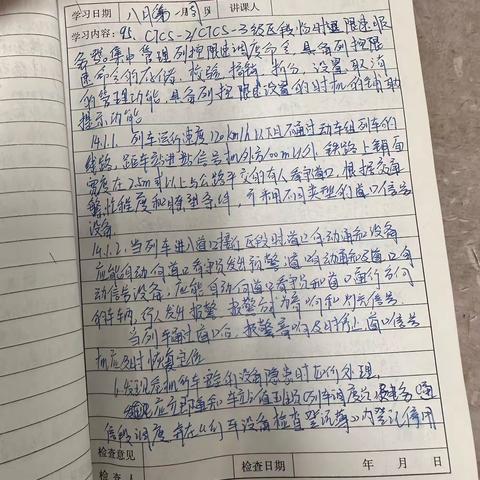 学习日期 八月第一周 讲课人
学习内容: 95. CTCS-2/CTCS-3级区段临时限速服
务器集中管理列控限速调度命令, 具备列控限
速命令的存储、校验、撤销、拆分、设置、取消
的管理功能, 具备列控限速设置的时机的辅助
提示功能
14.1.1. 列车运行速度120km/h以下且不通过动车组列车的
线路, 距车站进站信号机外方100m以外, 铁路上
宽度在2.5m或以上与公路平交的有人看守道口, 根据
繁忙程度和瞭望条件, 并采用不同类型的道口信号
设备.
14.1.2. 当列车进入道口接近区段时道口自动通知设备
应能自动向道口看守员发出预警, 道口自动通知及道口自
动信号设备, 应能自动向道口看守员和道口通行方向
的车辆、行人发出报警, 报警方式为音响和灯光信号
当列车通过道口后, 报警音响及时停止, 道口信号
机应及时恢复定位
1. 发现危及行车安全的设备隐患时如何处理.
应立即通知车站值班员(列车调度员)或
调度, 并在《行车设备检查登记簿》内登记停用
检查意见
检查人 检查日期 年 月 日